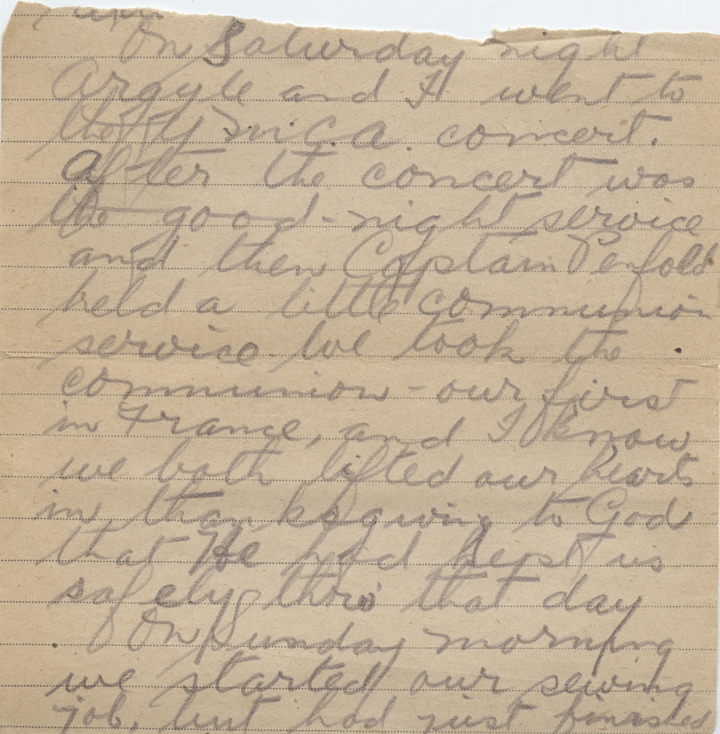 On Saturday night
Argyle and I went to
the Y.M.C.A. concert.
After the concert was
the good-night service
and then Captain Penfold
held a little communion
service. We took the
communion - our first
in France, and I know
we both lifted our hearts
in thanksgiving to God
that He had kept us
safely thro' that day
On Sunday morning
we started our sewing
job, but had just finished